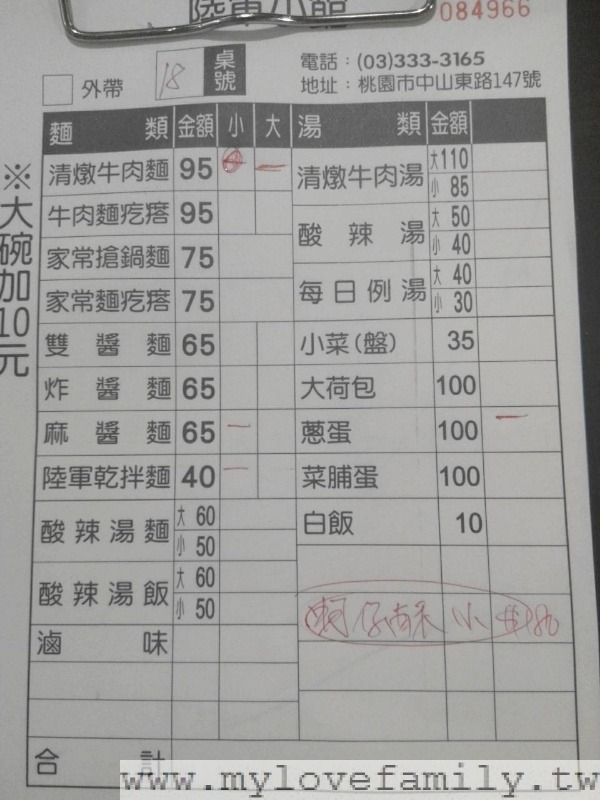 陸軍小館
084966
電話：(03)333-3165
地址：桃園市中山東路147號
外帶 18 桌號
※大碗加10元
麵類 金額 小 大 湯類 金額
清燉牛肉麵 95 一 清燉牛肉湯 大110 小 85
牛肉麵疙瘩 95
酸辣湯 大 50 小 40
家常搶鍋麵 75
家常麵疙瘩 75 每日例湯 大 40 小 30
雙醬麵 65 小菜(盤) 35
炸醬麵 65 大荷包 100
麻醬麵 65 一 蔥蛋 100 一
陸軍乾拌麵 40 一 菜脯蛋 100
酸辣湯麵 大 60 小 50 白飯 10
酸辣湯飯 大 60 小 50
小
滷味
合計
www.mylovefamily.tw